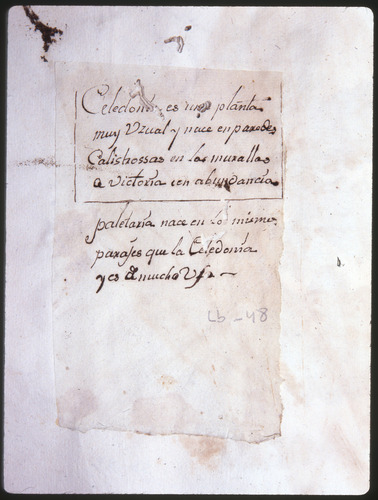 Celedonia es una planta
muy Vzual y nace en paredes
Calistrossas en las murallas
a victoria con abundancia
paletaria nace en los mismos
parajes que la Celedonia
y es de mucho Uso
Lb-48